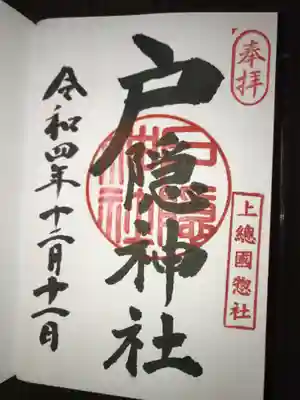 奉拝
上總國惣社
戸隠神社
令和四年十二月十八日